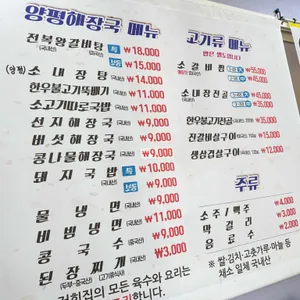 양평해장국 메뉴
전복왕갈비탕 특 ₩18,000
(국내산) 보통 ₩15,000
(양평) 소내장탕 (국내산) ₩14,000
한우불고기뚝배기 ₩11,000
소고기따로국밥 ₩11,000
선지해장국 (국내산) ₩9,000
버섯해장국 (국내산) ₩9,000
콩나물해장국 (국내산) ₩9,000
돼지국밥 (국내산) 특 ₩10,000
보통 ₩9,000
물냉면 ₩9,000
비빔냉면 (국내산) ₩11,000
콩국수 (중국산) ₩9,000
된장찌개 (국내산) ₩3,000
(두부-중국산)
고기류 메뉴
밥은 별도입니다
소갈비찜 ₩55,000
₩45,000
소내장전골 (국내산) ₩45,000
₩35,000
한우불고기전골 ₩35,000
진갈비살구이 ₩15,000
생삼겹살구이 ₩12,000
주류
소주/맥주 ₩4,000
막걸리 ₩3,000
음료수 ₩2,000
저희집의 모든 육수와 요리는
※ 쌀·김치·고춧가루·마늘 등
채소 일체 국내산